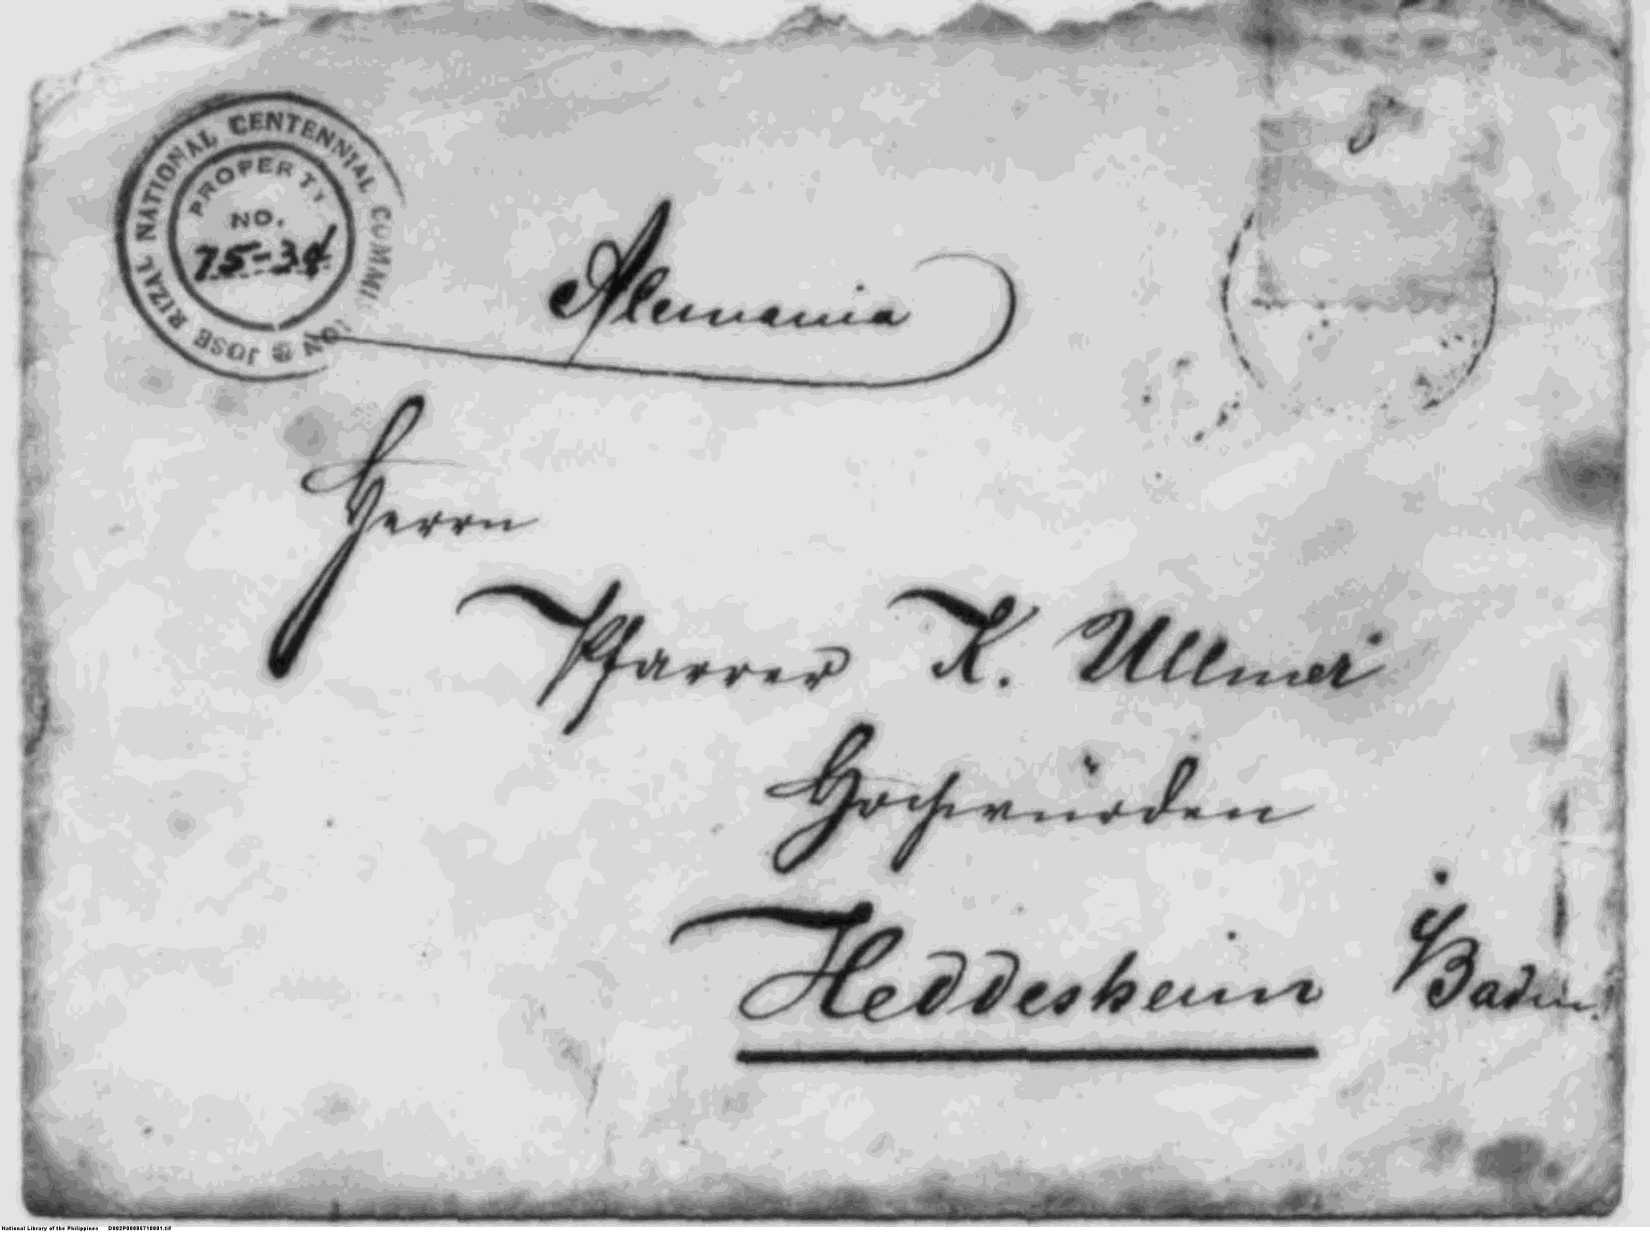 JOSE RIZAL NATIONAL CENTENNIAL COMMI ION
PROPERTY
NO.
75-34
Alemania
Herrn
Pfarrer K. Ullmer
Hochwürden
Heddesheim Baden.
National Library of the Philippines D002P00005710001.tif